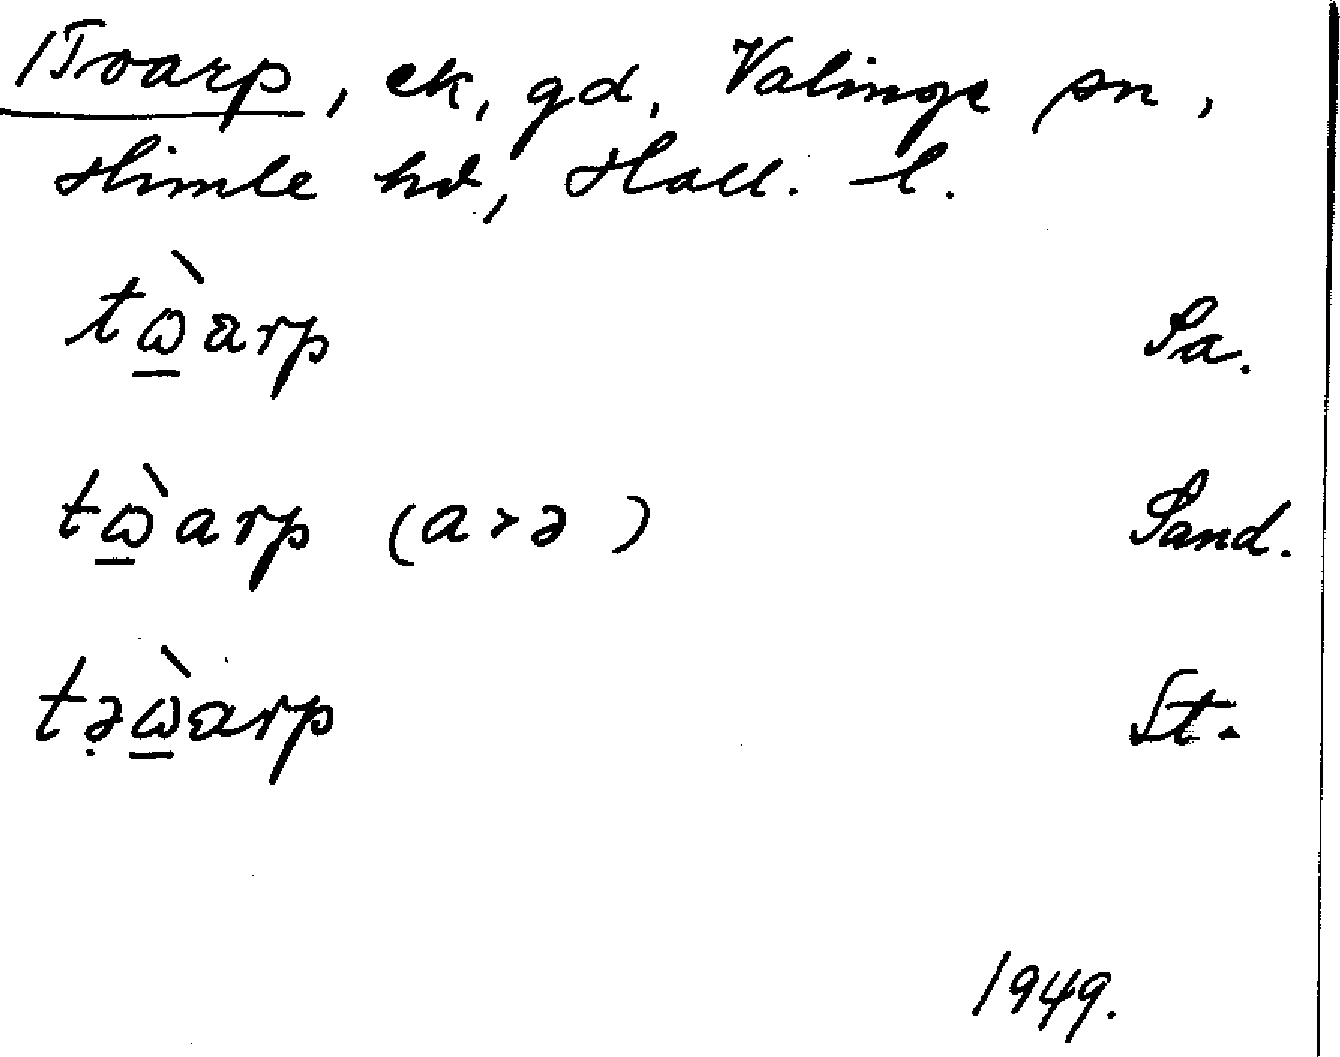 Tvarp, ek, gd, Valinge sn,
Himle hd, Hall. l.
tὼ̲arp Sa.
tὼ̲arp (a>ə) Sand.
tə̣ὼ̲arp St.
1949.